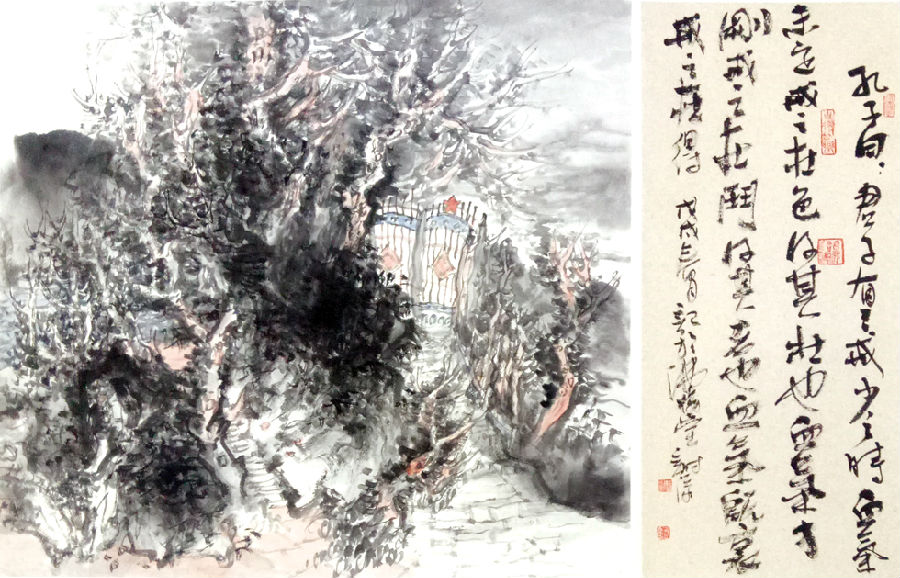 孔子曰君子有三戒少之时血氣
未定戒之在色及其壯也血氣方
剛戒之在鬪及其老也血氣既衰
戒之在得 戊戌